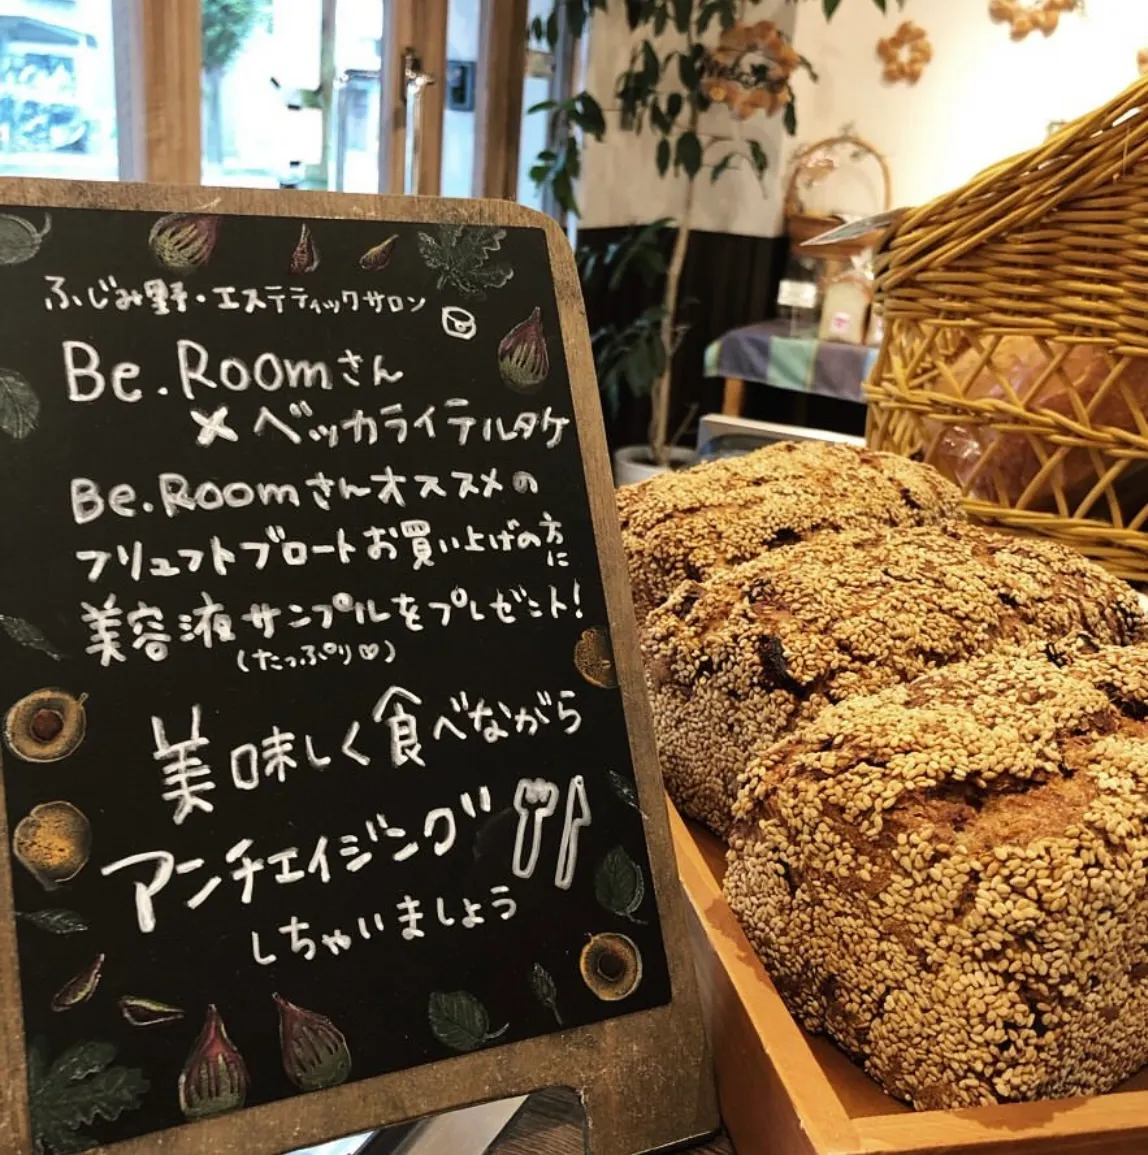 ふじみ野・エステティックサロン
Be.Roomさん
×ベッカライテルタケ
Be.Roomさんオススメの
フリュフトブロートお買い上げの方に
美容液サンプルをプレゼント!
(たっぷり♡)
美味しく食べながら
アンチエイジング
しちゃいましょう